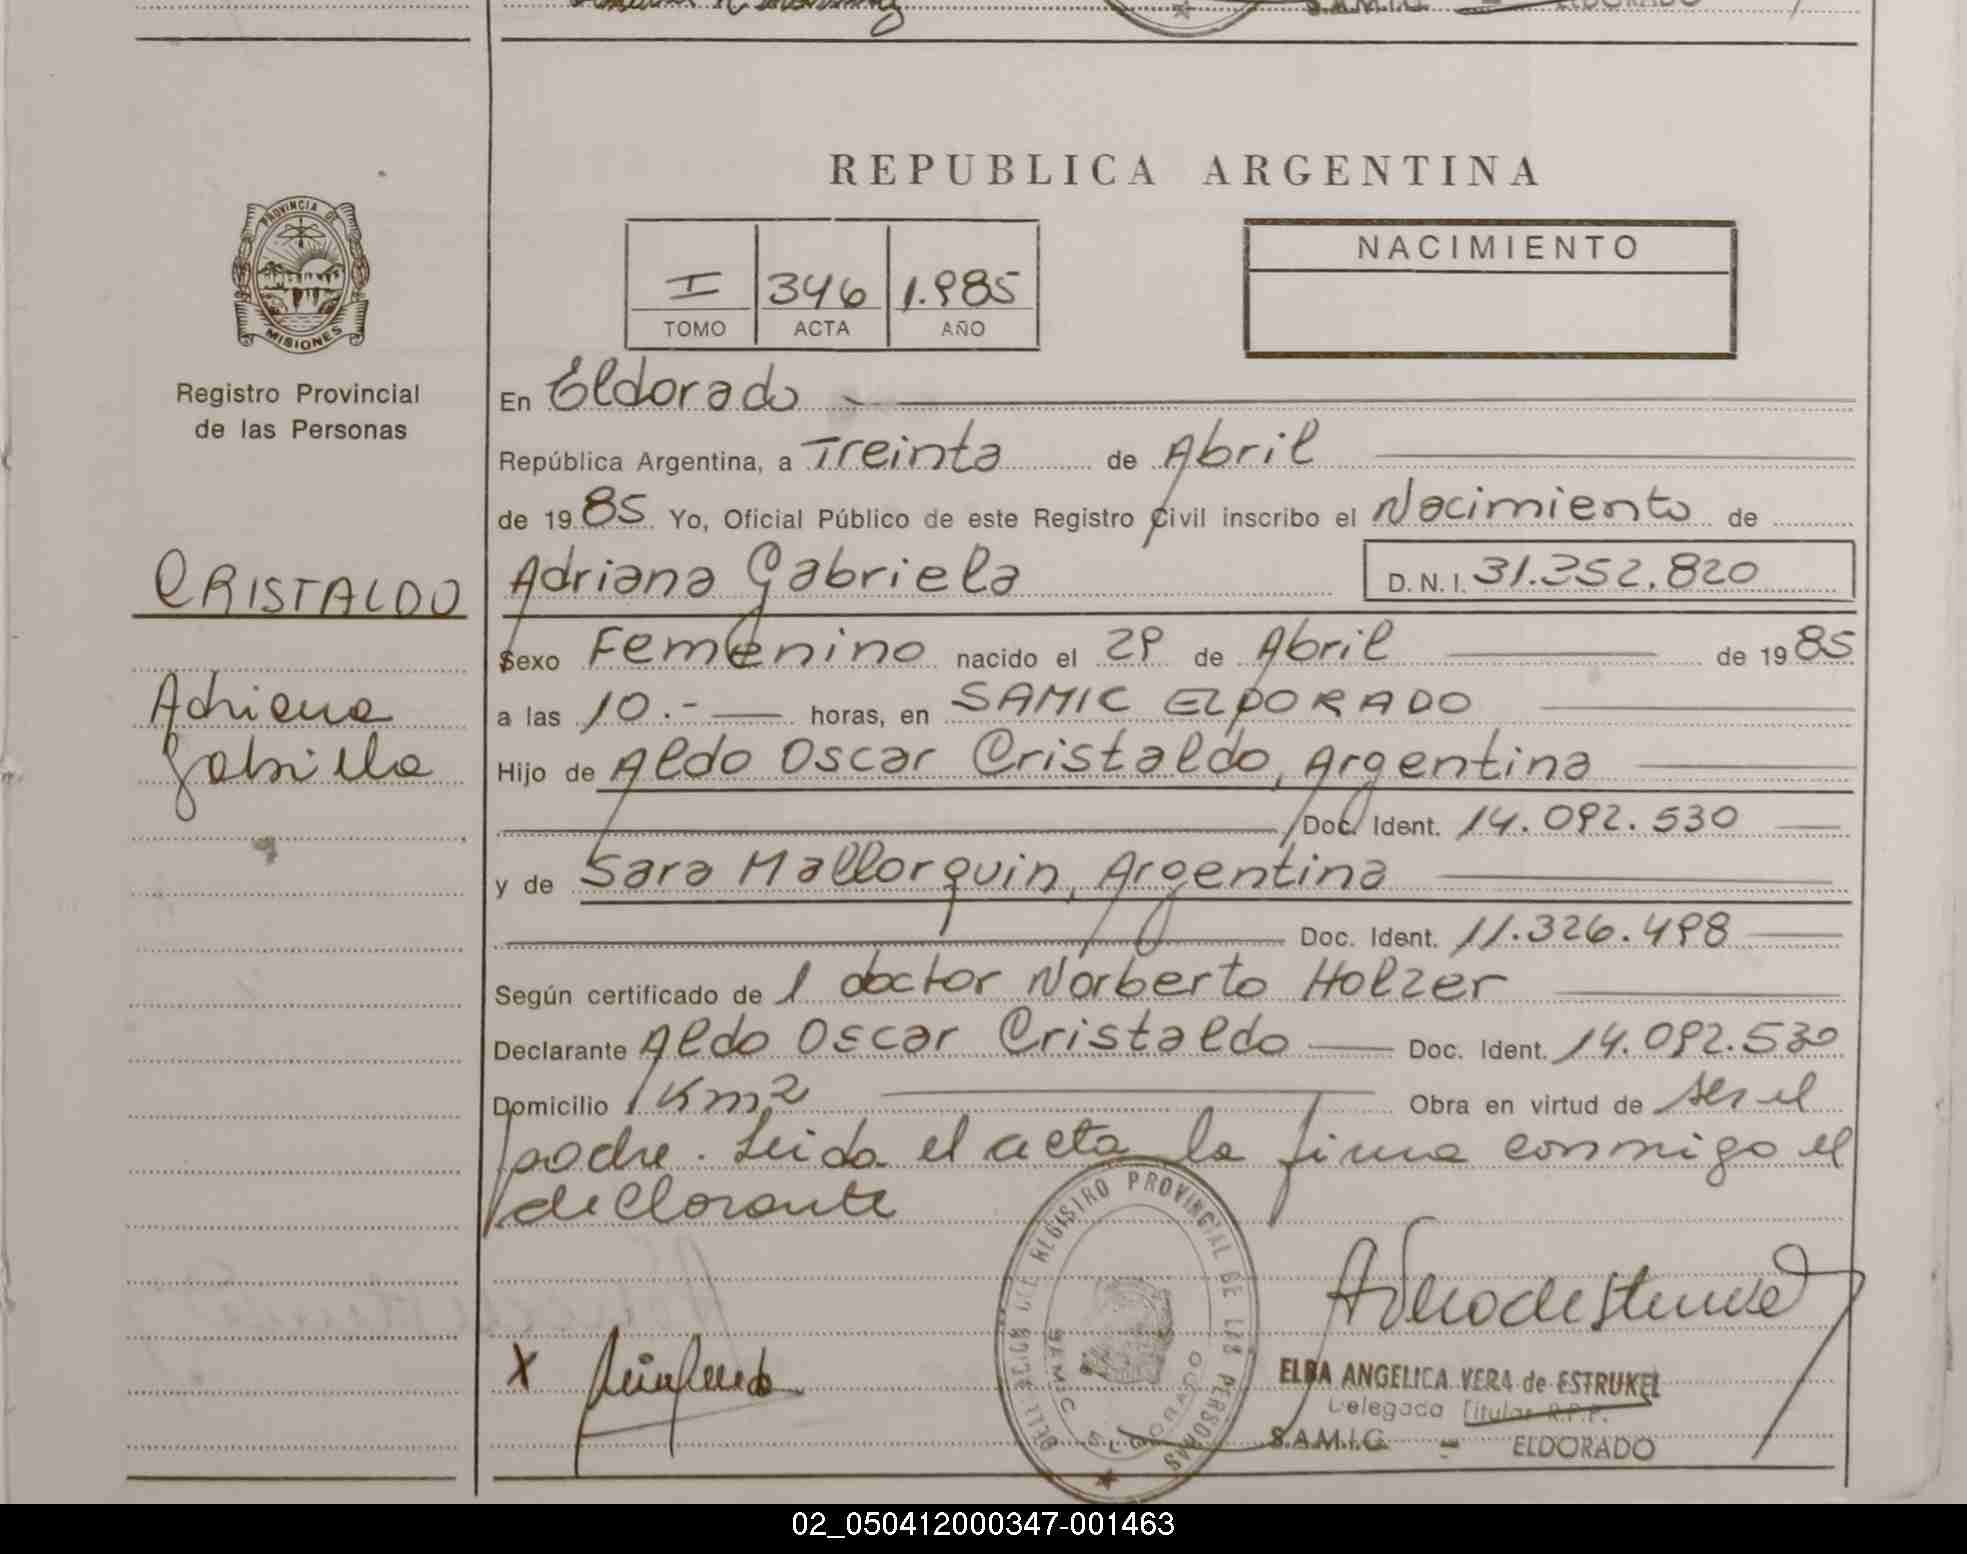 S.A.M.I.C. — ELDORADO
REPUBLICA ARGENTINA
PROVINCIA DE
MISIONES
Registro Provincial
de las Personas
I 346 1.985
TOMO ACTA AÑO
NACIMIENTO
En Eldorado
República Argentina, a Treinta de Abril
de 1985 Yo, Oficial Público de este Registro Civil inscribo el Nacimiento de
CRISTALDO
Adriana Gabriela D.N.I. 31.352.820
Sexo Femenino nacido el 29 de Abril de 1985
Adriana
Gabriela
a las 10.- horas, en SAMIC ELDORADO
Hijo de Aldo Oscar Cristaldo, Argentina
Doc. Ident. 14.092.530
y de Sara Mallorquin, Argentina
Doc. Ident. 11.326.498
Según certificado de l doctor Norberto Holzer
Declarante Aldo Oscar Cristaldo Doc. Ident. 14.092.530
Domicilio Km 2 Obra en virtud de ser el
padre. Leida el acta la firma conmigo el
declarante
DELEGACION DEL REGISTRO PROVINCIAL DE LAS PERSONAS
SAMIC ELDORADO
X
ELBA ANGELICA VERA de ESTRUKEL
Delegada Titular R.P.P.
S.A.M.I.C. — ELDORADO
02_050412000347-001463